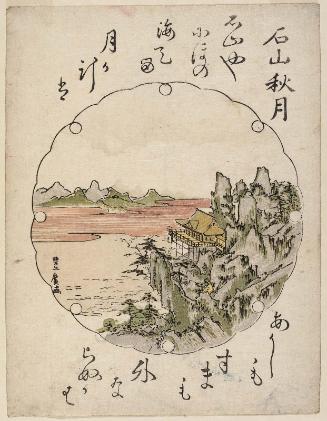 石山秋月
石山や
にほの
海てる
月か
け
は
あかし
も
すま
も
外
な
らぬか
は
豊廣画